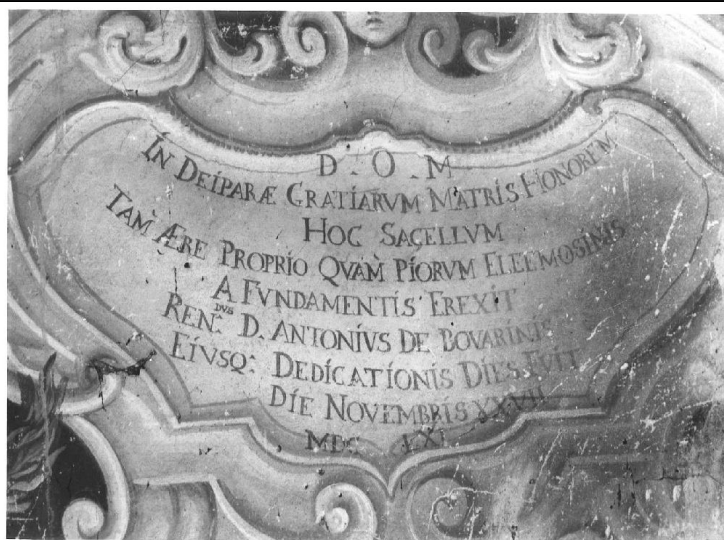 D. O. M
IN DEIPARÆ GRATIARVM MATRIS HONOREM
HOC SACELLVM
TAM ÆRE PROPRIO QVAM PIORVM ELEEMOSINIS
A FVNDAMENTIS EREXIT
REN.DVS D. ANTONIVS DE
EIVSQ. DEDICATIONIS DIES FVIT
DIE NOVEMBRIS XXVII